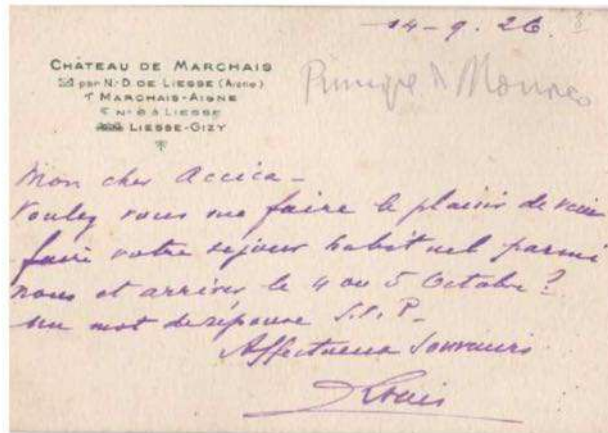 14-9.26.
CHATEAU DE MARCHAIS
par N.-D. DE LIESSE (Aisne)
MARCHAIS-AISNE
N° 6 À LIESSE
LIESSE-GIZY
Principe di Monaco
Mon cher Accica -
Voulez vous me faire le plaisir de venir
faire votre séjour habituel parmi
nous et arriver le 4 ou 5 Octobre?
Un mot de réponse S.V.P.
Affectueux Souvenirs
Louis